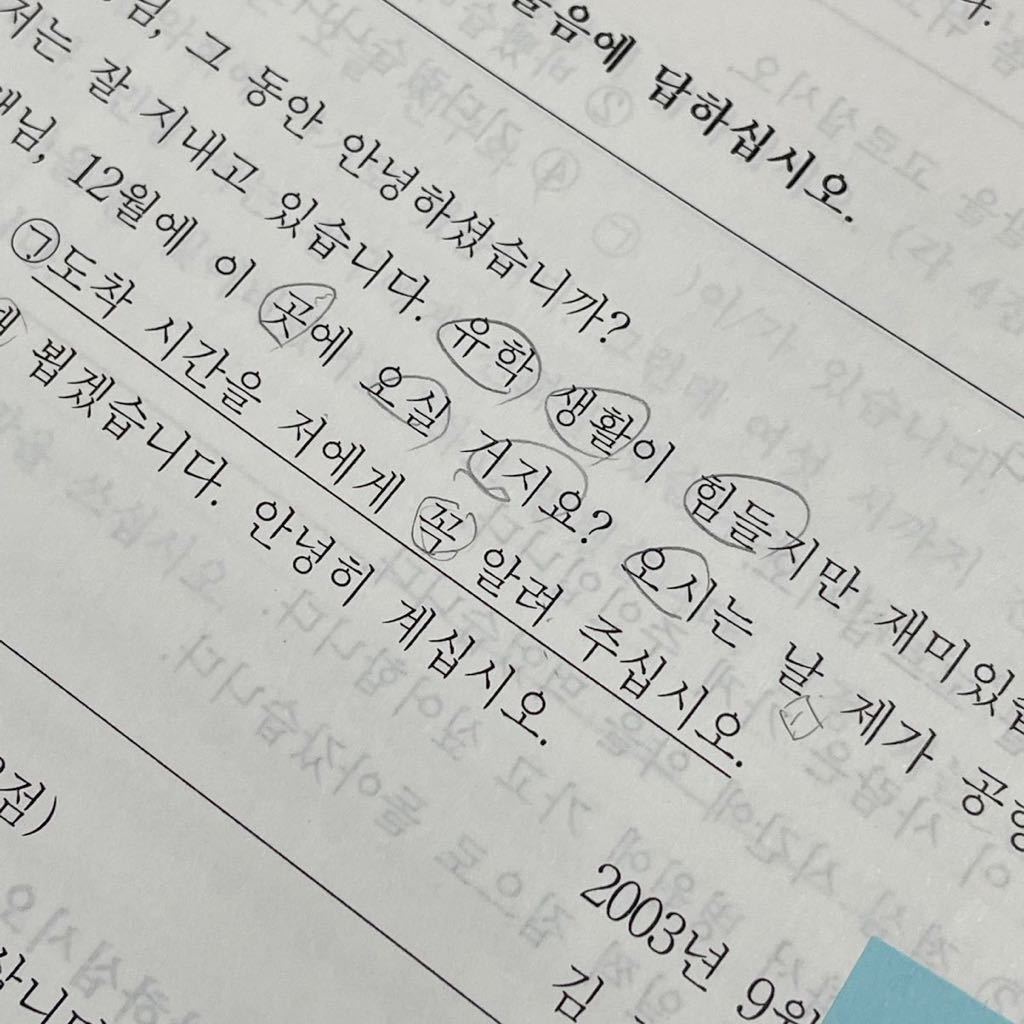 음에 답하십시오.
님, 그 동안 안녕하셨습니까?
저는 잘 지내고 있습니다. 유학 생활이 힘들지만 재미있
님, 12월에 이 곳에 오실 거지요? 오시는 날 제가 공항
㉠도착 시간을 저에게 꼭 알려 주십시오.
뵙겠습니다. 안녕히 계십시오.
2003년 9월
김
점)